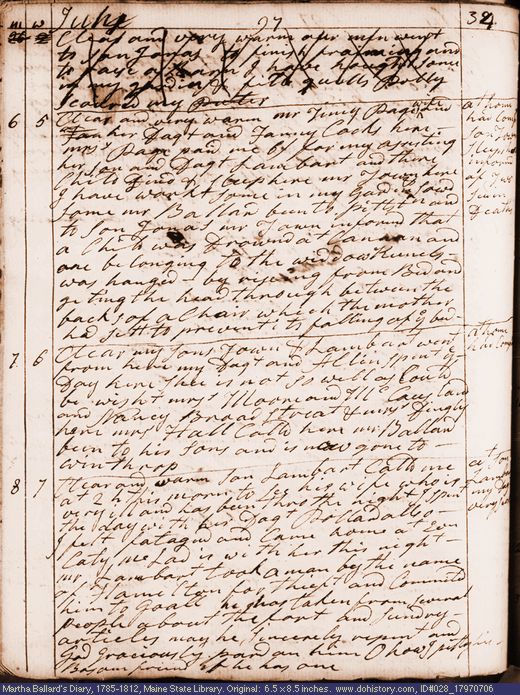 m w July 27 32
Clear and very warm our men went
to son Jonas to finish framing and
to raise a barn I have hough some
in my gardin
scoured my Puter
6 5 Clear and very warm mr Timy Page his wife
her Dagt and Fanny Cocks here
mrs Dam paid me 6/ for my assisting
her son and Dagt Lambart and there
Child Dind & sleep here mr Town here
I have workt some in my gardin sow'd
some mr Ballard been to Pittston and
to son Jonas mr Town inform'd that
a Child was Drownd at Canaan and
one belonging to the widdow
was hanged by riseing from Bed and
geting the head through between the
backs of a Chair which the mother
had sett to prevent its falling of ye bed
at home
had Comp
7 6 Clear my sons Town & Lambart went
from here my Dagt and Allin spent ye
Day here shee is not so well as Could
be wisht mrs Moore and
and Nancy Broad Street & mrs Dingly
here mrs Hall Calld here mr Ballard
been to his sons and is now gone to
winthrop
at home
8 7 Clear and warm son Lambart Calld me
at 2 h this morn to see his wife who is
very ill and has been thro the night I spent
the day with her Dag Pollard allso
I felt fatagud and Came home at Evn
Caty is with her this night
mr Lambart took a man by the name
of Hamelton for theft and Committd
him to Goale he has taken from several
people about the fort and sundry
articles may he sincerely repent and
God Graciously pardon him O how I pitty his
Bosom friend if he has one
Martha Ballard's Diary, 1785-1812, Maine State Library. Original: 6.5 x 8.5 inches. www.dohistory.com, ID#028_17970706